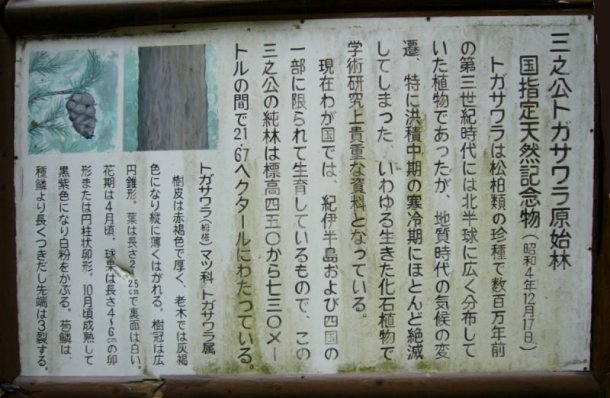 三之公トガサワラ原始林
国指定天然記念物(昭和4年12月17日)
トガサワラは松柏類の珍種で数百万年前
の第三世紀時代には北半球に広く分布して
いた植物であったが、地質時代の気候の変
遷、特に洪積中期の寒冷期にほとんど絶滅
してしまった、いわゆる生きた化石植物で
学術研究上貴重な資料となっている。
現在わが国では、紀伊半島および四国の
一部に限られて生育しているもので、この
三之公の純林は標高四五〇から七三〇メー
トルの間で21.67ヘクタールにわたっている。
トガサワラ マツ科 トガサワラ属
樹皮は赤褐色で厚く、老木では灰褐
色になり縦に薄くはがれる。樹冠は広
円錐形。葉は長さ2 2.5cmで裏面は白い。
花期は4月頃、球果は長さ4~6cmの卵
形または円柱状卵形。10月頃成熟して
黒紫色になり白粉をかぶる。苞鱗は、
種鱗より長くつきだし先端は3裂する。